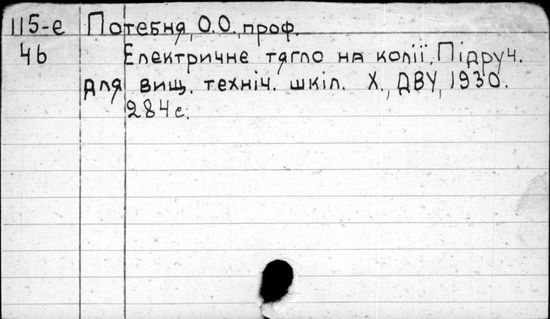 115-є Потебня, О.О. проф.
46 Електричне тягло на колії, Підруч.
для вищ. техніч. шкіл. Х., ДВУ, 1930.
284 с.